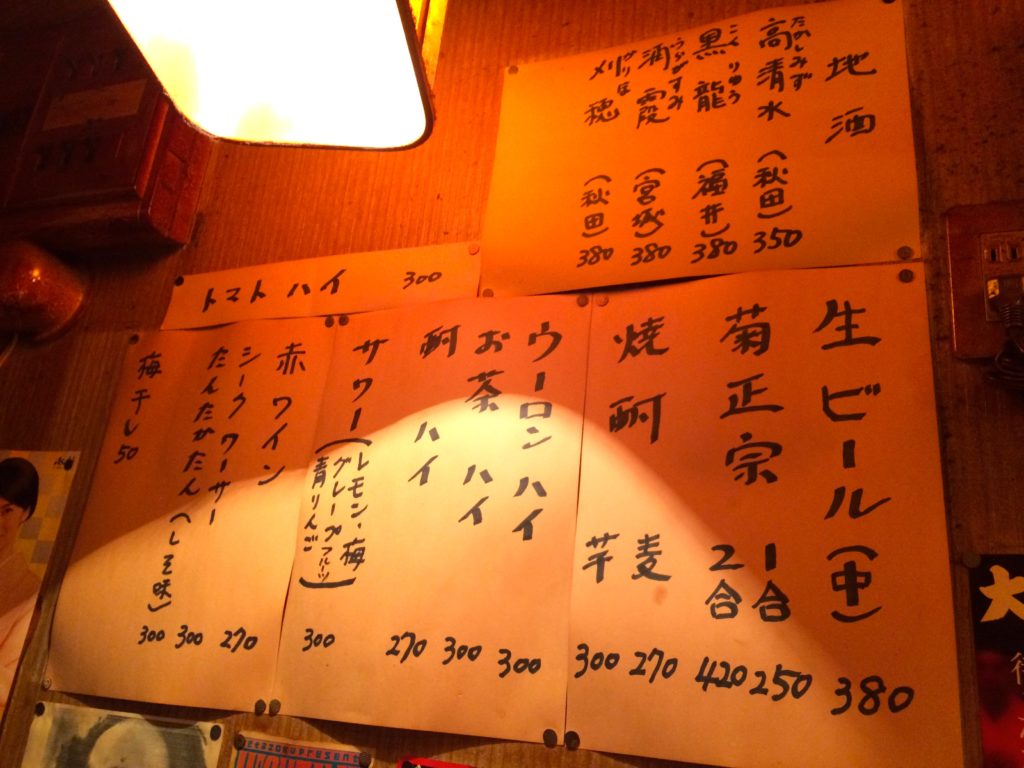 地酒
たかしみず
高清水(秋田)350
こくりゅう
黒龍(福井)380
うらがすみ
浦霞(宮城)380
かりほ
刈穂(秋田)380
トマトハイ 300
生ビール(中) 380
菊正宗 1合 250
2合 420
焼酎 麦 270
芋 300
ウーロンハイ 300
お茶ハイ 300
酎ハイ 270
サワー(レモン・梅
グレープフルーツ
青りんご) 300
赤ワイン 270
シークワーサー 300
たんたかたん(しそ味) 300
梅干し 50